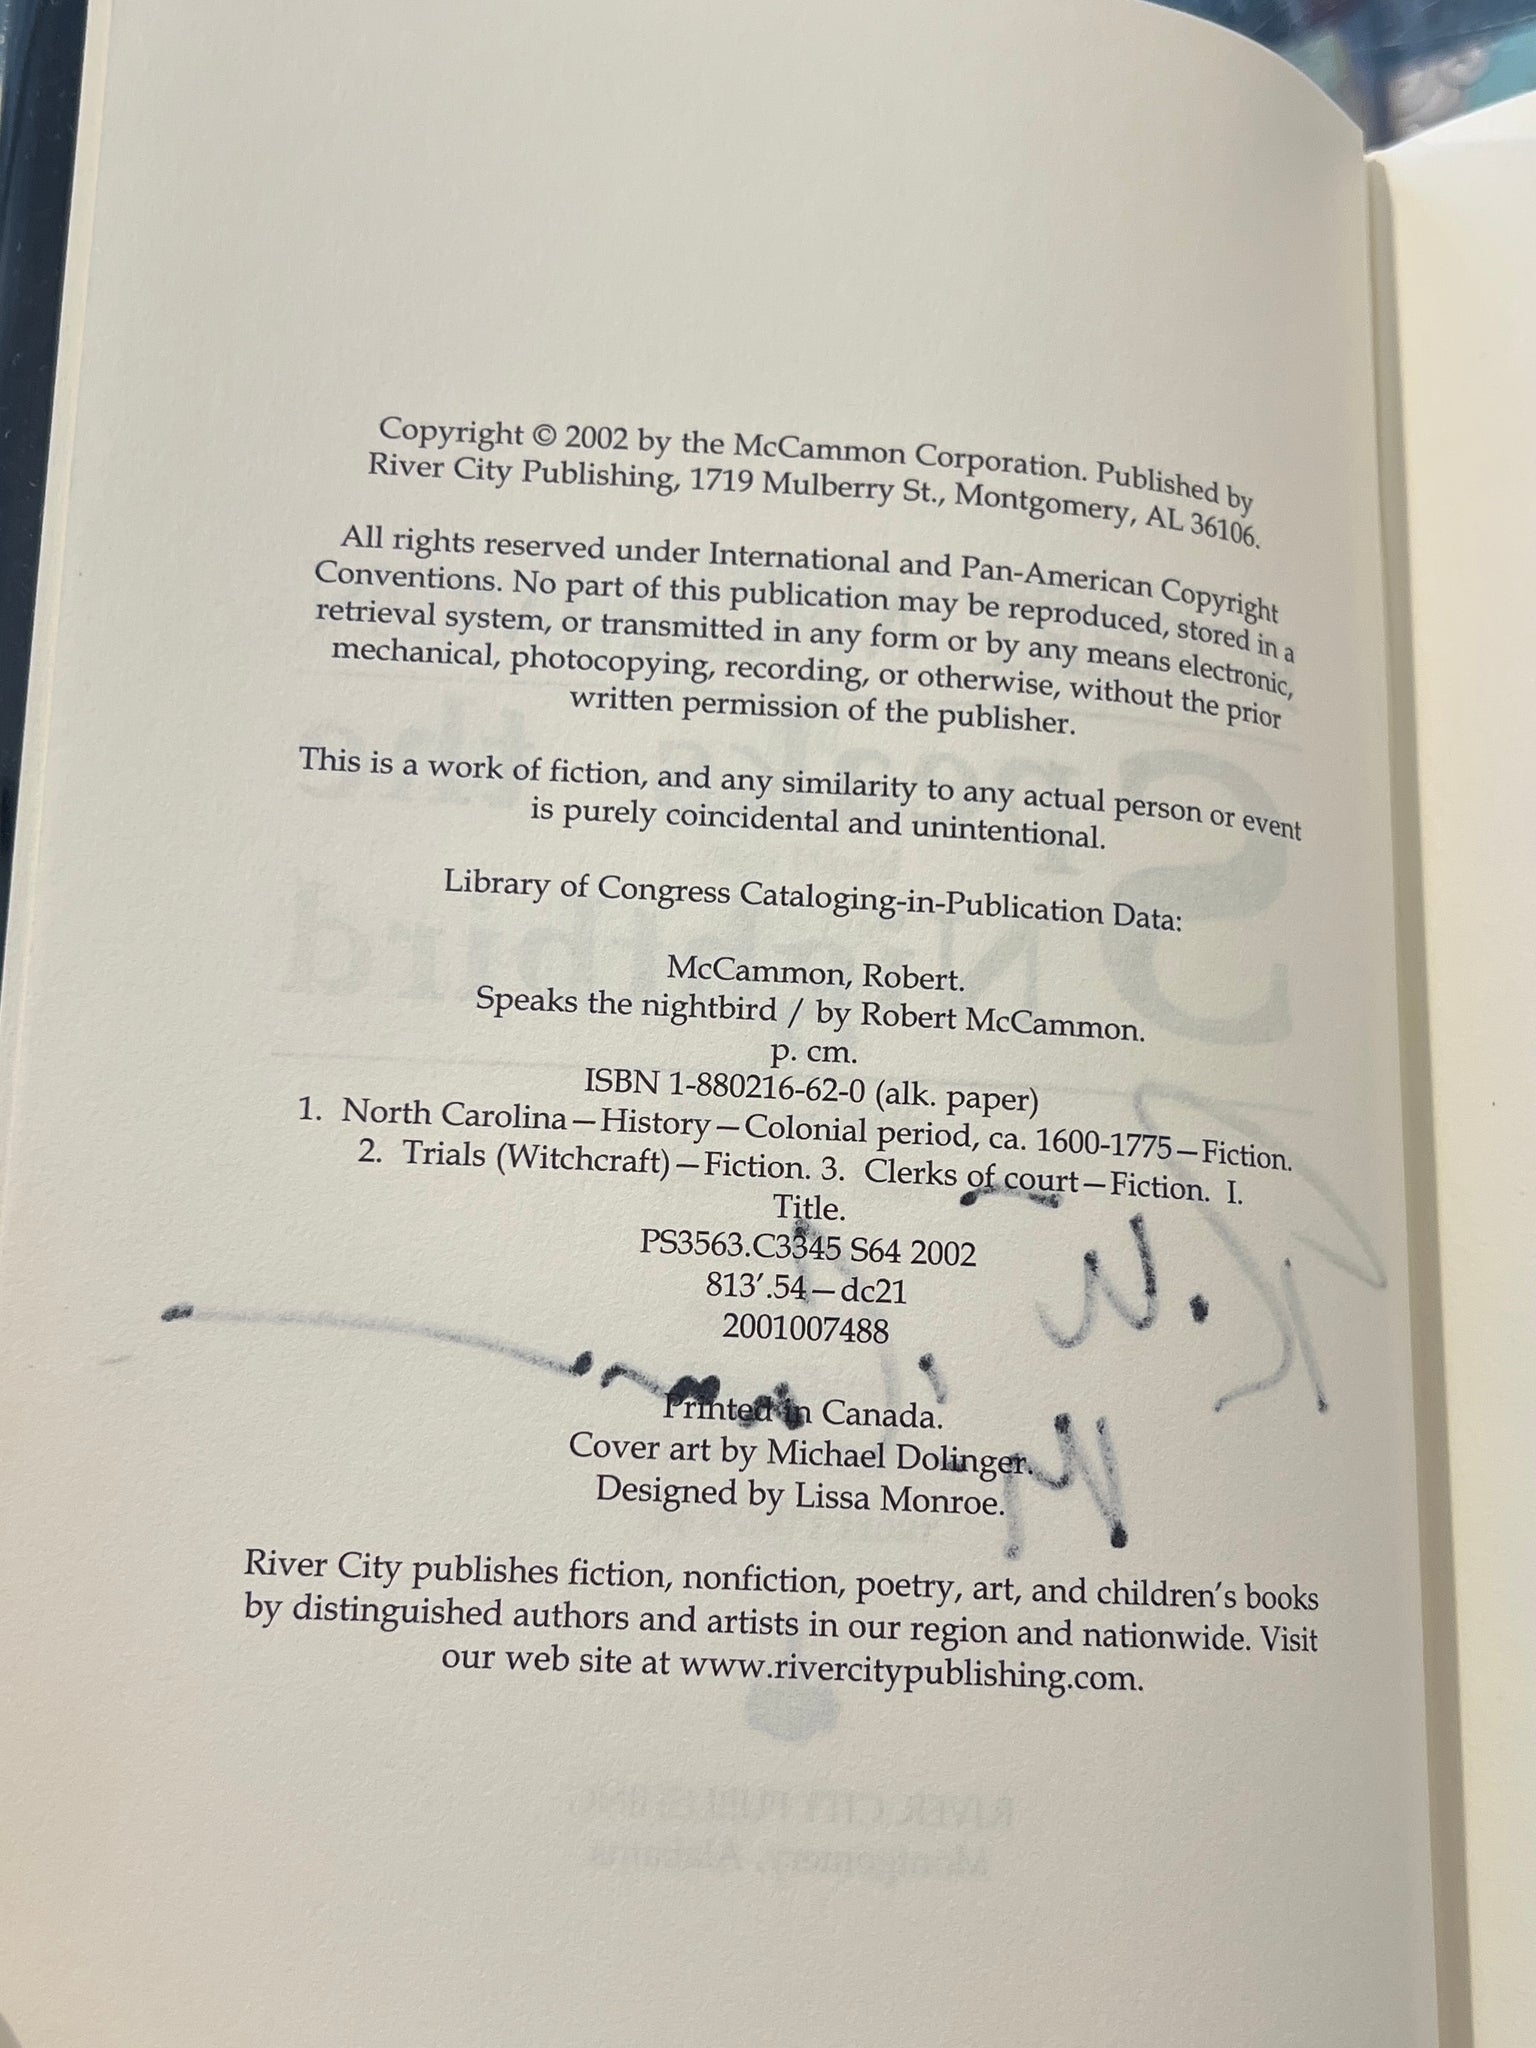 Copyright © 2002 by the McCammon Corporation. Published by
River City Publishing, 1719 Mulberry St., Montgomery, AL 36106.
All rights reserved under International and Pan-American Copyright
Conventions. No part of this publication may be reproduced, stored in a
retrieval system, or transmitted in any form or by any means electronic,
mechanical, photocopying, recording, or otherwise, without the prior
written permission of the publisher.
This is a work of fiction, and any similarity to any actual person or event
is purely coincidental and unintentional.
Library of Congress Cataloging-in-Publication Data:
McCammon, Robert.
Speaks the nightbird / by Robert McCammon.
p. cm.
ISBN 1-880216-62-0 (alk. paper)
1. North Carolina—History—Colonial period, ca. 1600-1775—Fiction.
2. Trials (Witchcraft)—Fiction. 3. Clerks of court—Fiction. I.
Title.
PS3563.C3345 S64 2002
813'.54—dc21
2001007488
Printed in Canada.
Cover art by Michael Dolinger.
Designed by Lissa Monroe.
River City publishes fiction, nonfiction, poetry, art, and children's books
by distinguished authors and artists in our region and nationwide. Visit
our web site at www.rivercitypublishing.com.